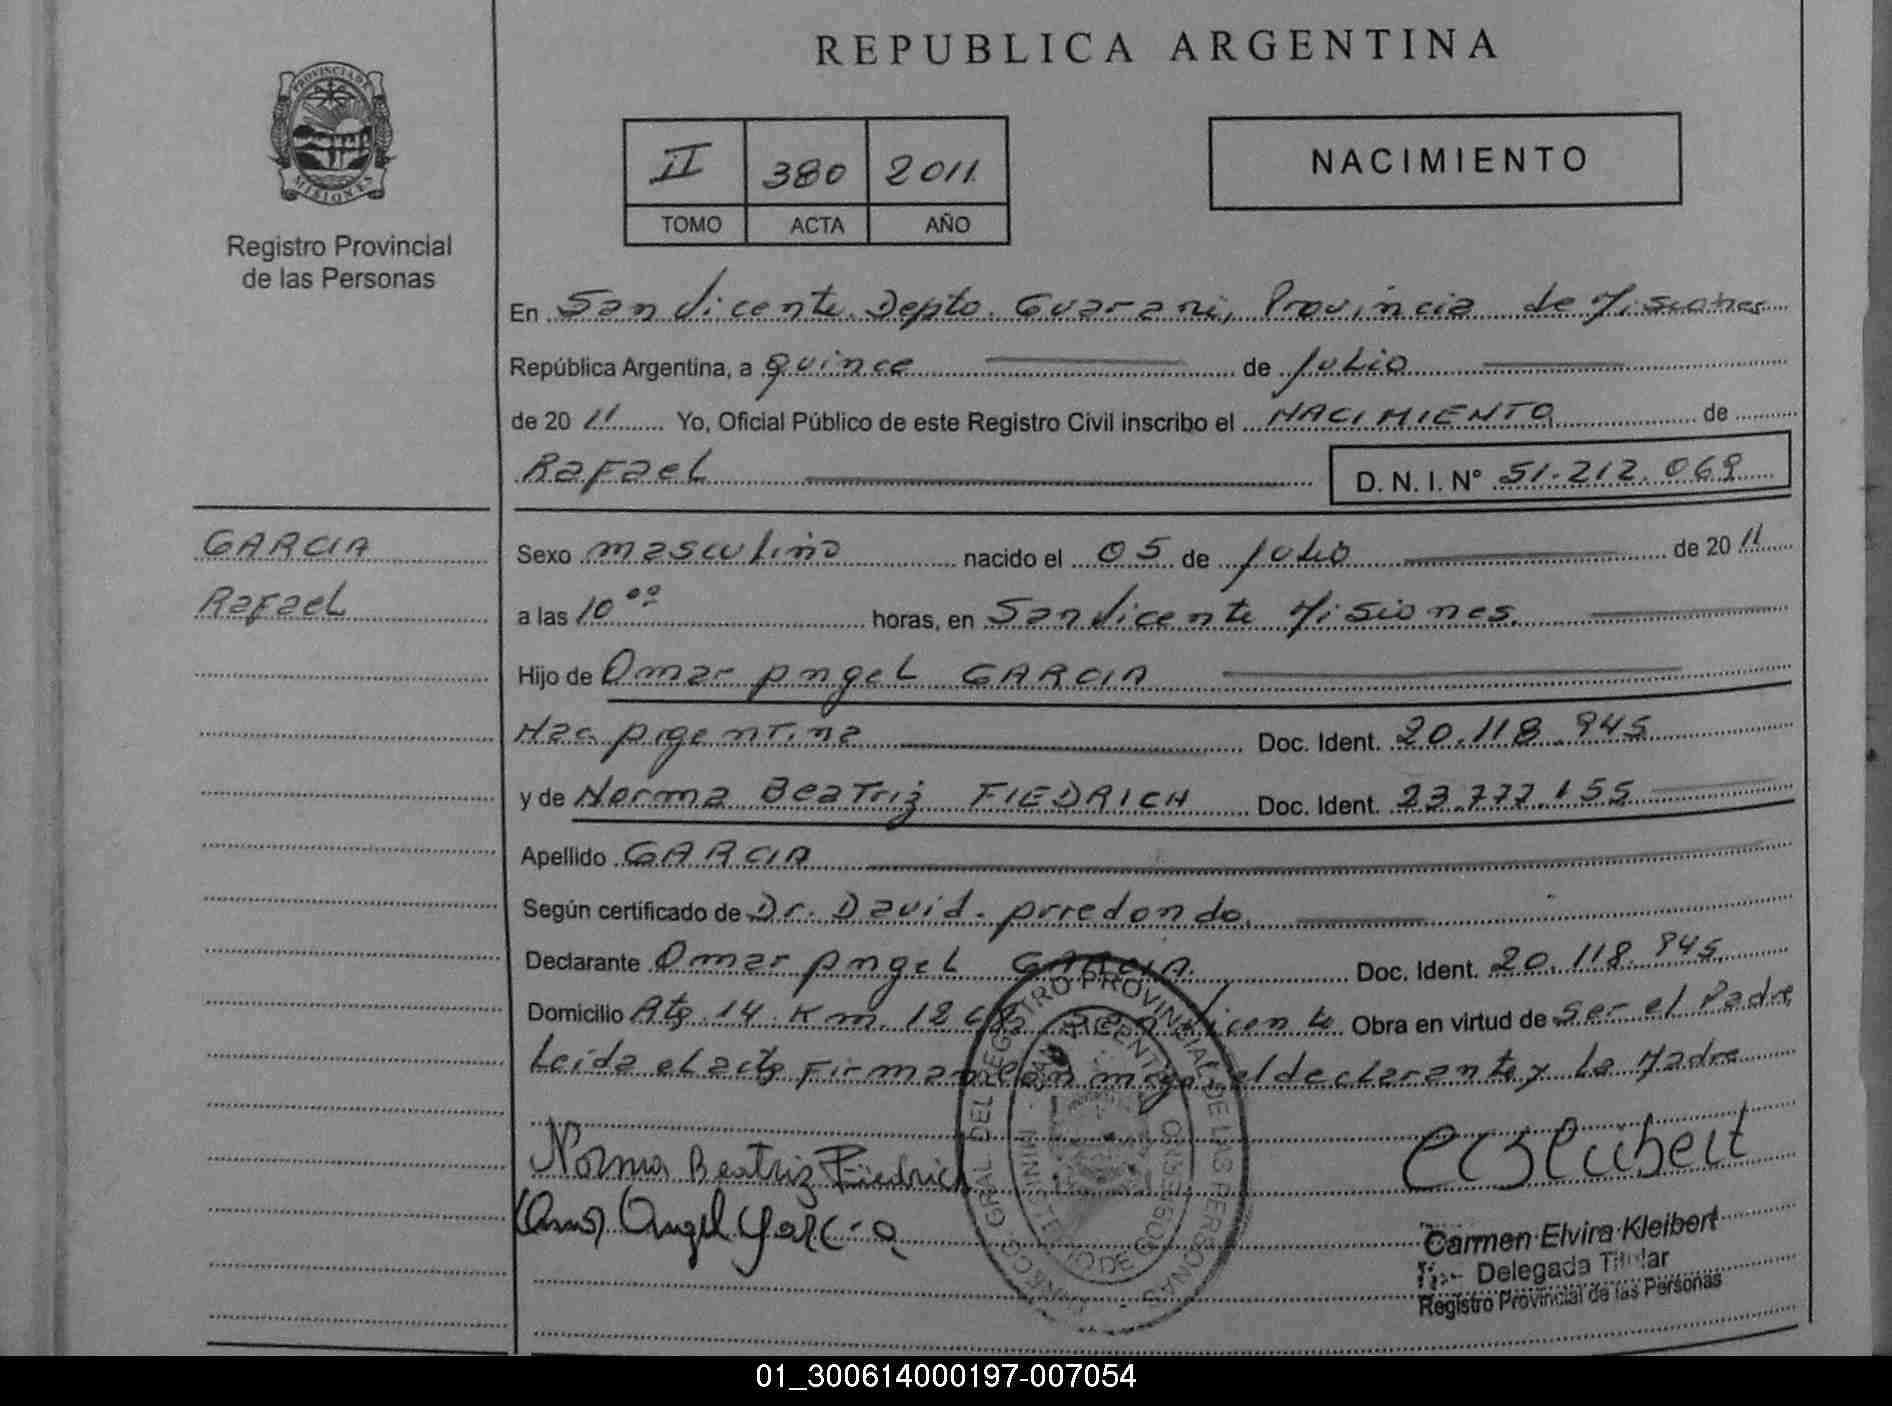 REPUBLICA ARGENTINA
PROVINCIA DE
MISIONES
Registro Provincial
de las Personas
II 380 2011
TOMO ACTA AÑO
NACIMIENTO
En San Vicente Depto. Guarani, Provincia de Misiones
República Argentina, a quince de Julio
de 2011 Yo, Oficial Público de este Registro Civil inscribo el NACIMIENTO de
Rafael D. N. I. N° 51.212.069
GARCIA
Rafael
Sexo masculino nacido el 05 de Julio de 2011
a las 10 00 horas, en San Vicente Misiones.
Hijo de Omar Angel GARCIA
Nac. Argentina Doc. Ident. 20.118.945
y de Norma Beatriz FIEDRICH Doc. Ident. 23.777.155
Apellido GARCIA
Según certificado de Dr. David Arredondo.
Declarante Omar Angel GARCIA. Doc. Ident. 20.118.945
Domicilio 14 Km. San Vicente Obra en virtud de ser el Padre
Leída el acta Firman con migo, el declarante y La Madre
Norma Beatriz Fiedrich
Omar Angel Garcia
Carmen Elvira Kleibert
Delegada Titular
Registro Provincial de las Personas
01_300614000197-007054